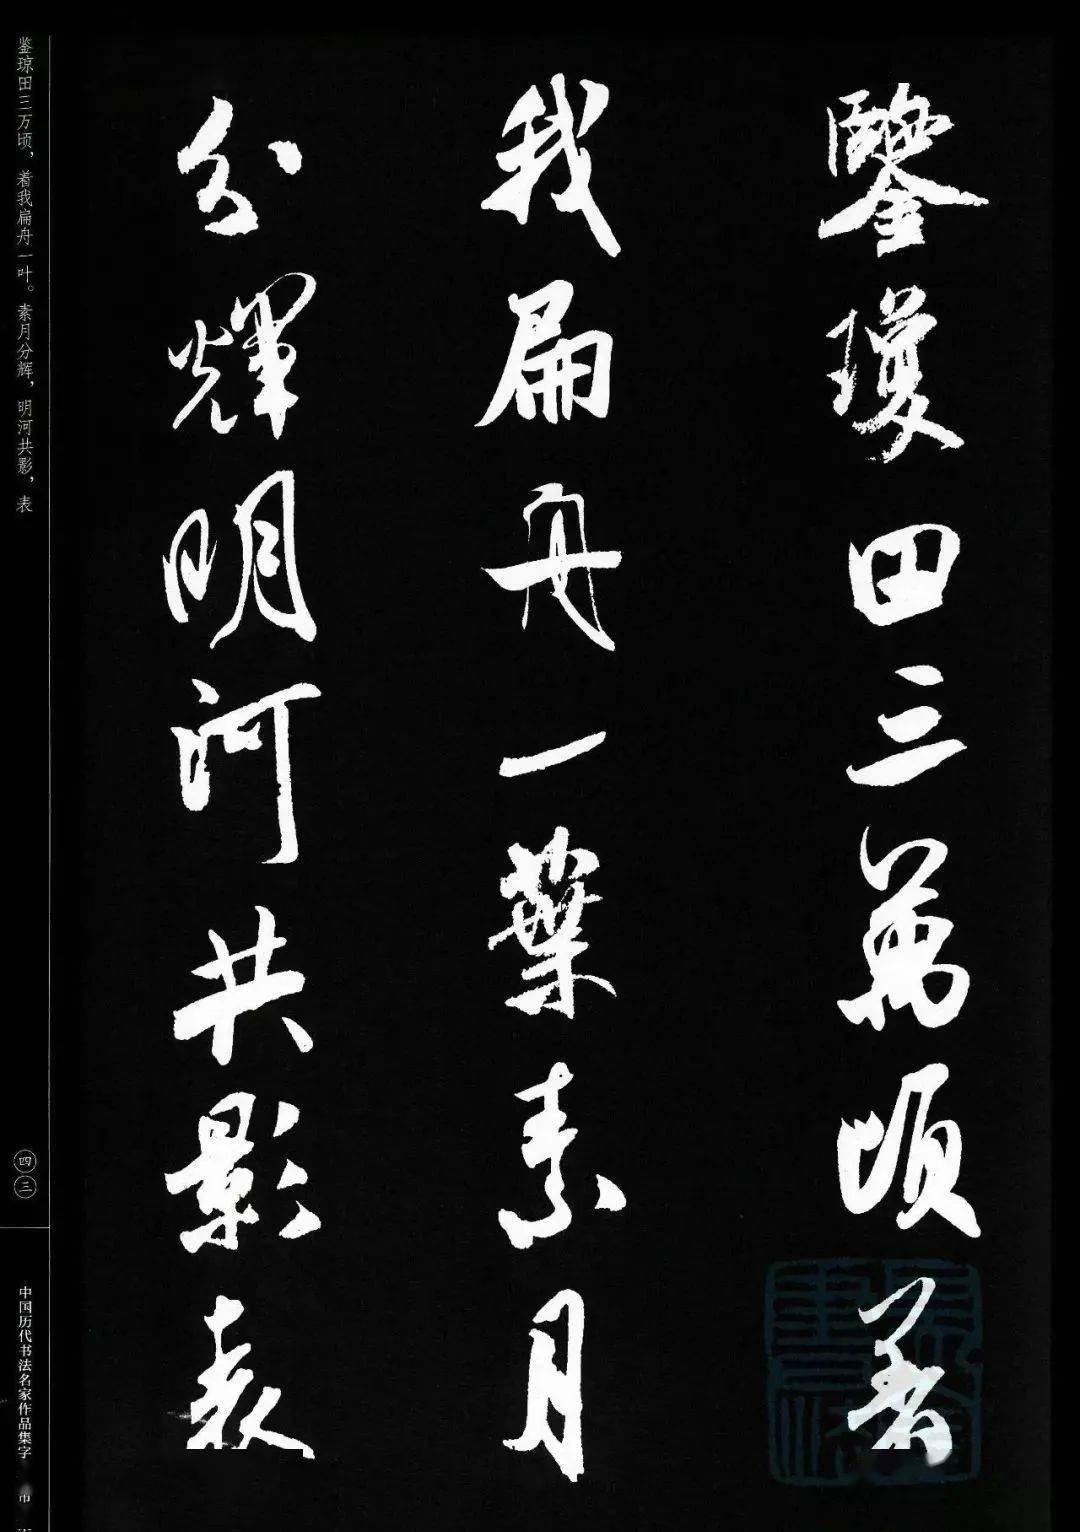 鑒瓊田三萬頃着
我扁舟一葉素月
分輝明河共影表
鉴琼田三万顷，着我扁舟一叶。素月分辉，明河共影，表
四三
中国历代书法名家作品集字